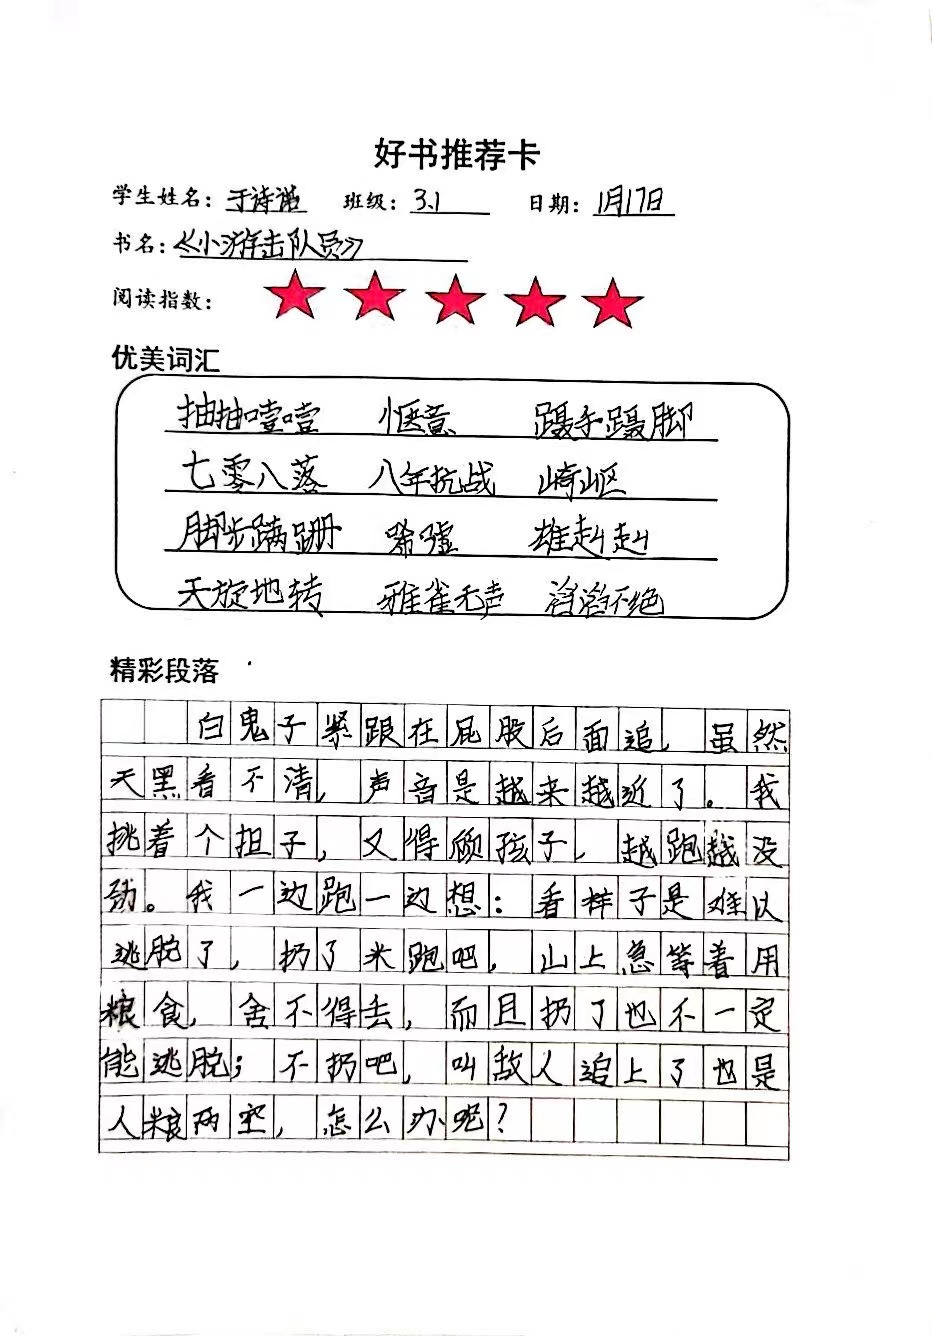 好书推荐卡
学生姓名：于诗涵 班级：3.1 日期：1月17日
书名：《小游击队员》
阅读指数：
优美词汇
抽抽噎噎 惬意 蹑手蹑脚
七零八落 八年抗战 崎岖
脚步蹒跚 唏嘘 雄赳赳
天旋地转 雅雀无声 滔滔不绝
精彩段落
白鬼子紧跟在屁股后面追，虽然
天黑看不清，声音是越来越近了。我
挑着个担子，又得顾孩子，越跑越没
劲。我一边跑一边想：看样子是难以
逃脱了，扔了米跑吧，山上急等着用
粮食，舍不得去，而且扔了也不一定
能逃脱；不扔吧，叫敌人追上了也是
人粮两空，怎么办呢？